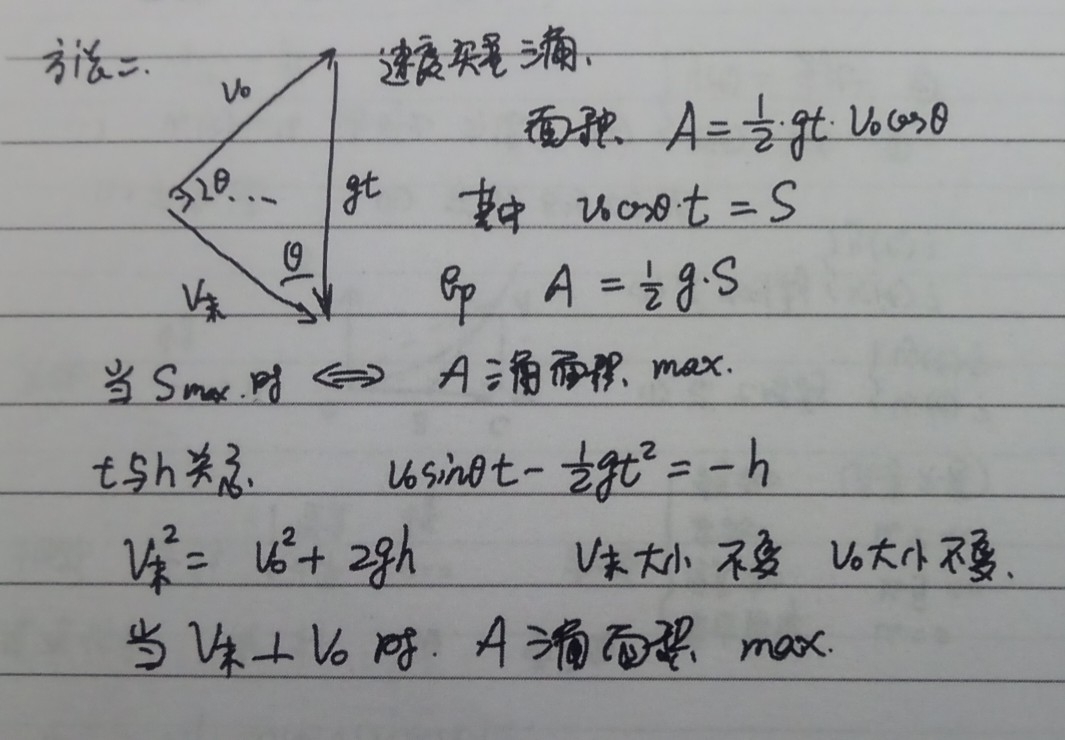 方法二. 速度矢量三角.
v₀
2θ...
gt
θ
v末
面积 A = 1/2·gt·v₀cosθ
其中 v₀cosθ·t = S
即 A = 1/2 g·S
当 Smax.时 ⟺ A 三角面积 max.
t与h关系. v₀sinθt - 1/2gt² = -h
v末² = v₀² + 2gh v末大小不变 v₀大小不变.
当 v末⊥v₀ 时. A 三角面积 max.